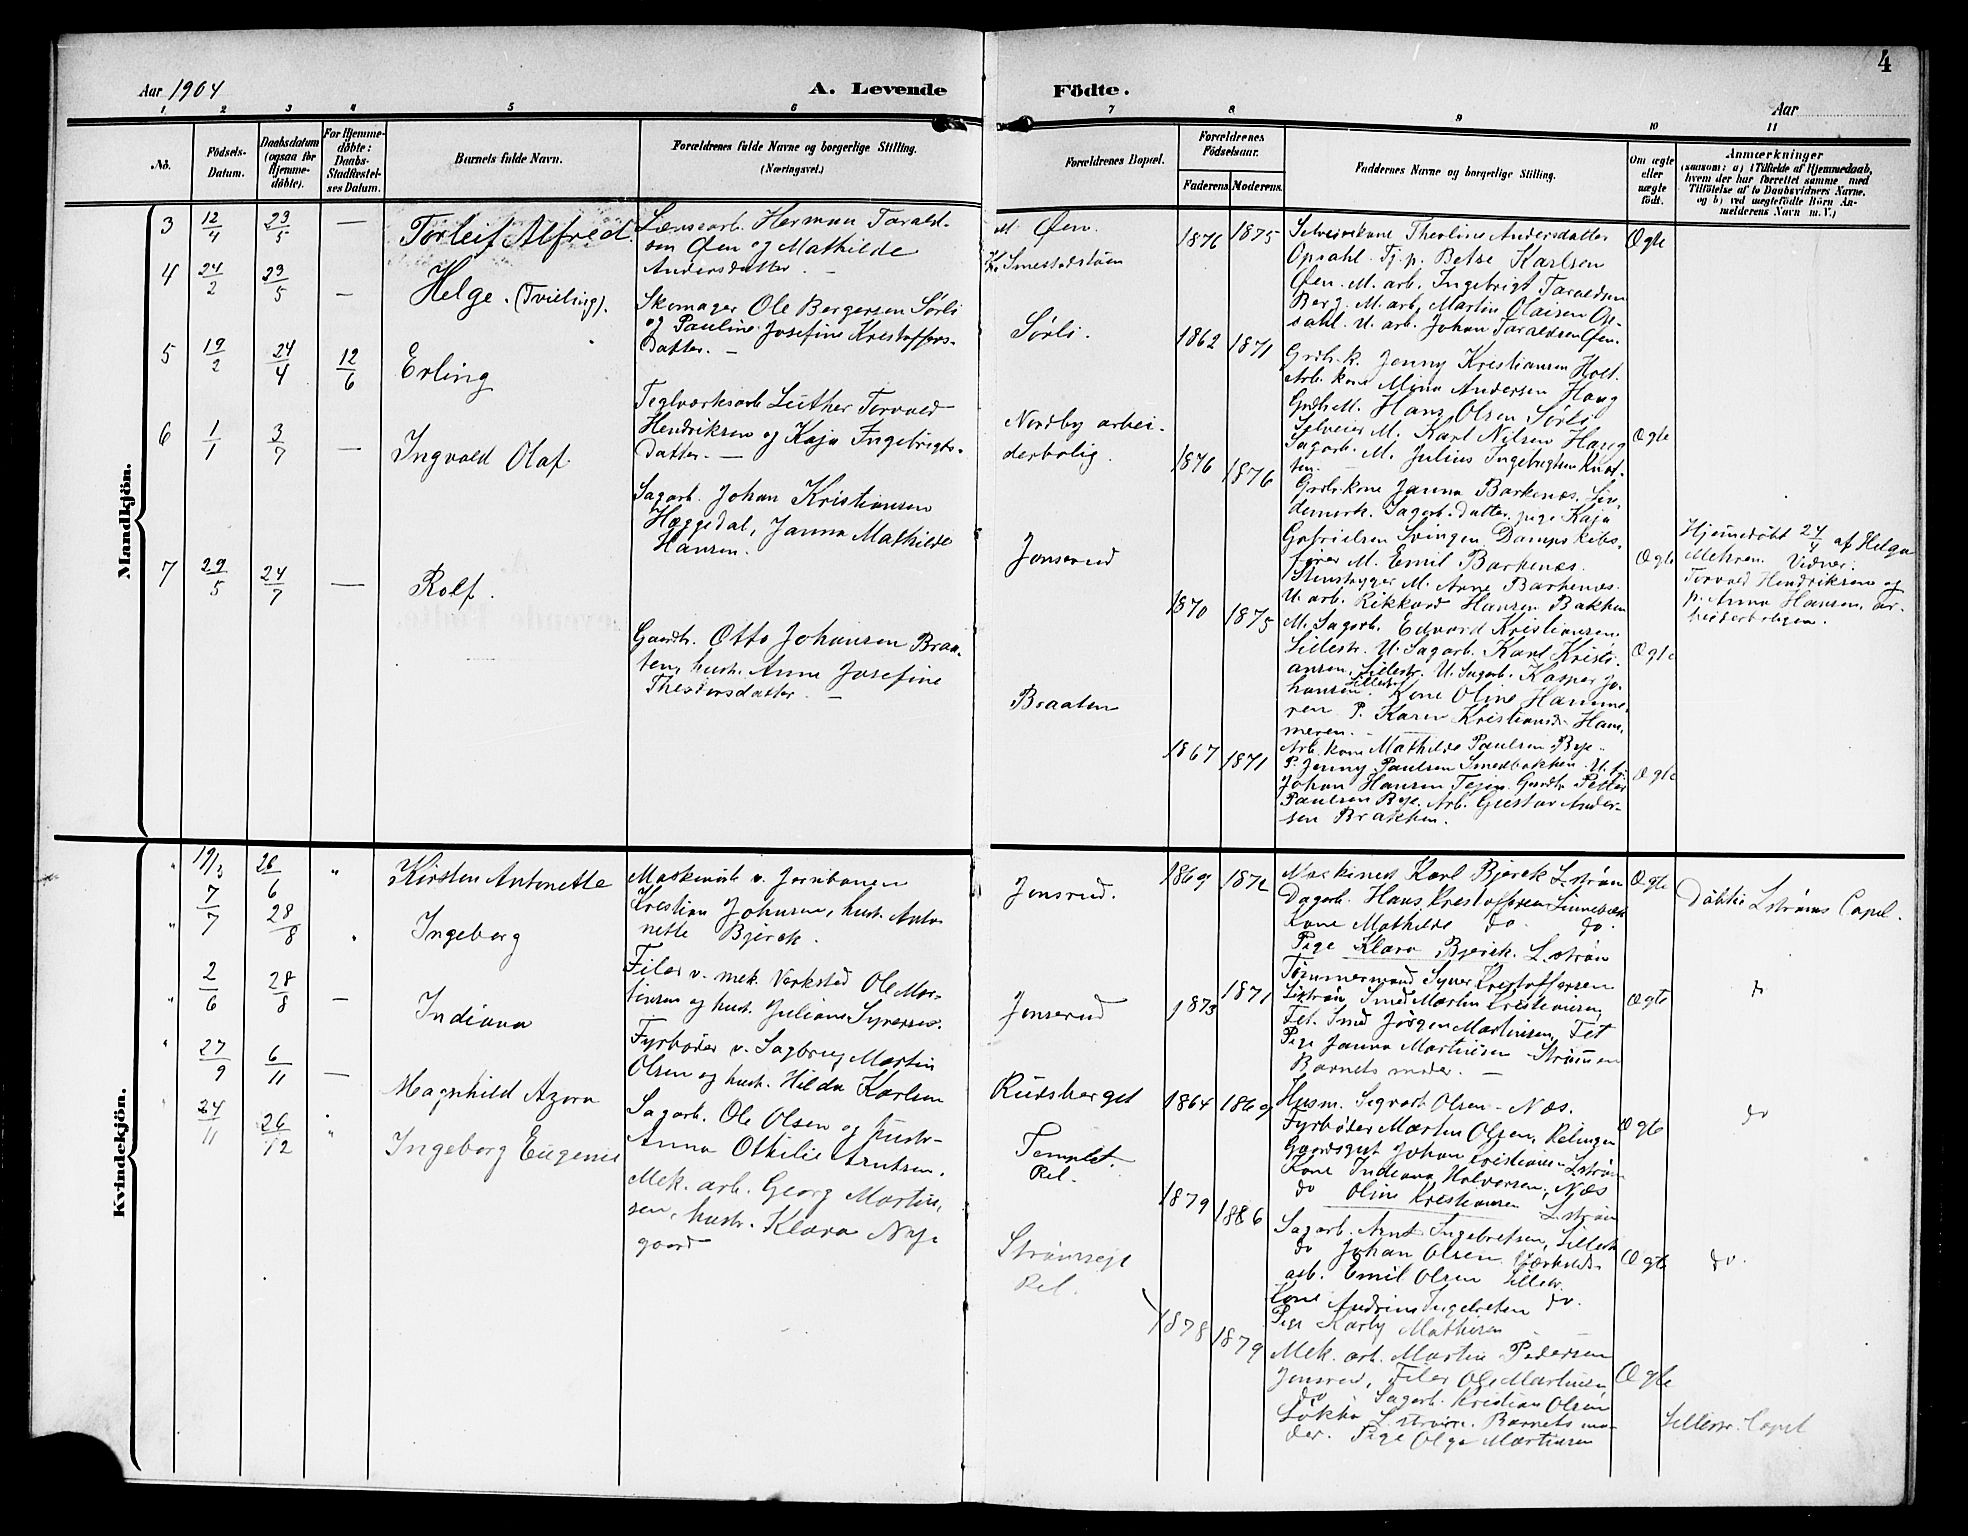 4
Aar 1904
A. Levende
Födte.
Aar
1 2 3 4 5 6 7 8 9 10 11
No.
Födsels-
Datum.
Daabsdatum
(ogsaa for
Hjemme-
döbte).
For Hjemme-
döbte:
Daabs-
Stadfæstel-
ses Datum.
Barnets fulde Navn.
Forældrenes fulde Navne og borgerlige Stilling.
(Næringsvei.)
Forældrenes Bopæl.
Forældrenes
Födselsaar.
Faderens.
Moderens.
Faddernes Navne og borgerlige Stilling.
Om ægte
eller
uægte
födt.
Anmærkninger
(saasom: a) i Tilfælde af Hjemmedaab,
hvem der har forrettet samme, med
Tilföielse af to Daabsvidners Navne,
og b) ved uægtefödte Börn An-
melderens Navn m. V.)
Mandkjön.
3 12/4 23/5 — Torleif Alfred.
Lænsearb. Herman Tarald-
sen Øen og Mathilde
Andersdatter. —
M. Øen.
K. Smestadstuen
1876 1875
Selveierkone Theoline Andersdatter
Opsahl. Tj. p. Betse Karlsen
Øen. M. arb. Ingebrigt Taraldsen
Berg. M. arb. Martin Olaisen Op-
sahl. U. arb. Johan Taraldsen Øen.
Ægte
4 24/2 23/5 — Helge. (Tvilling).
Skomager Ole Bergersen Sørli
og Pauline Josefine Kristoffers-
datter. —
Sørli.
1862 1871
Grdb. k. Jenny Kristiansen Holt.
Arb. kone Mina Andersen Haug
Grdb. M. Hans Olsen Sørli
Selveier M. Karl Nilsen Haug
Sagarb. M. Julius Ingebrigtsen Knat-
ten.
Ægte
5 19/2 24/4 12/6 Erling
Teglværksarb Luther Torvald
Hendriksen og Kaja Ingebrigts-
datter. —
Nordby arbei-
derbolig.
1876 1876
Grdb. kone Janna Barkenæs. Lin-
demark. Sagarb. datter. pige Kaja
Gabrielsen Svingen Dampskibs-
fører M. Emil Barkenæs.
Stenhugger M. Arne Barkenæs.
U. arb. Rikkard Hansen Bakken
Ægte
Hjemmedøbt 24/4 af Helga
Mehren. Vidner:
Torvald Hendriksen og
p. Anna Hansen, ar-
beiderboligen.
6 1/1 3/7 — Ingvald Olaf.
Sagarb. Johan Kristiansen
Hæggedal, Janna Mathilde
Hansen.
Jonserud
1870 1875
M. Sagarb. Edvard Kristiansen
Lillestr. U. Sagarb. Karl Kristi-
ansen, Lillestr. U. Sagarb. Kasper Jo-
hansen Lillestr. Kone Oline Hamme-
ren P. Karen Kristiansdr Ham-
meren. —
Ægte
7 29/5 24/7 — Rolf.
Gaardbr. Otto Johansen Braa-
ten, hustr. Anne Josefine
Theodorsdatter. —
Braaten
1867 1871
Arb. kone Mathilde Paulsen Bye
P. Jenny Paulsen Smedbakken. U. f.
Johan Hansen Teien. Gaardbr Petter
Paulsen Bye. Arb. Gustav Ander-
sen Brakken.
Ægte
Kvindekjön.
" 19/3 26/6 " Kirsten Antonette
Maskinist v. Jernbanen
Kristian Johnsen, hust. Anto-
nette Bjerck.
Jonsrud.
1869 1872
Maskinist Karl Bjerck L.strøm
Dagarb. Hans Kristoffersen Sinnebæk
Kone Mathilde do. do.
Pige Klara Bjerck. L.strøm
Ægte
Døbt i Lstrøms Capel.
" 7/7 28/8 " Ingeborg
Filer v. mek. Verksted Ole Mar-
tinsen og hust. Juliane Syversen.
Jonserud
1873 1871
Tømmermand Syver Kristoffersen
Lstrøm, Smed Martin Kristiansen,
Fet. Smed Jørgen Martinsen, Fet
Pige Janna Martinsen Strømmen
Barnets moder. —
Ægte
do
" 2/6 28/8 — Indiana
Fyrbøder v. Sagbrug Martin
Olsen og hust. Hilda Karlsen
Rudsberget
1864 1869
Husm. Sigvart Olsen - Næs.
Fyrbøder Martin Olsen, Relingen
Gaardsgut Johan Kristiansen Lstrøm
Kone Indiana Halvorsen, Næs
do Oline Kristiansen L.strøm
Ægte
do
" 27/9 6/11 — Magnhild Azora
Sagarb. Ole Olsen og hustr.
Anna Othilie Arntsen.
Templet.
Rel.
1879 1886
Sagarb. Arnt Ingebretsen, Lillestr
do Johan Olsen Værksteds-
arb. Emil Olsen Lillestr.
Kone Andrine Ingebretsen do.
Pige Karly Mathisen —
Ægte
do.
" 24/11 26/12 " Ingeborg Eugenie
Mek. arb. Georg Martin-
sen, hustr. Klara Ny-
gaard
Strømseje
Rel.
1878 1879
Mek. arb. Martin Pedersen
Jonsrud, Filer Ole Martinsen
do Sagarb. Kristian Olsen
Løkka L.strøm. Barnets mo-
der. Pige Olga Martinsen
Ægte
Lillestr. Capel